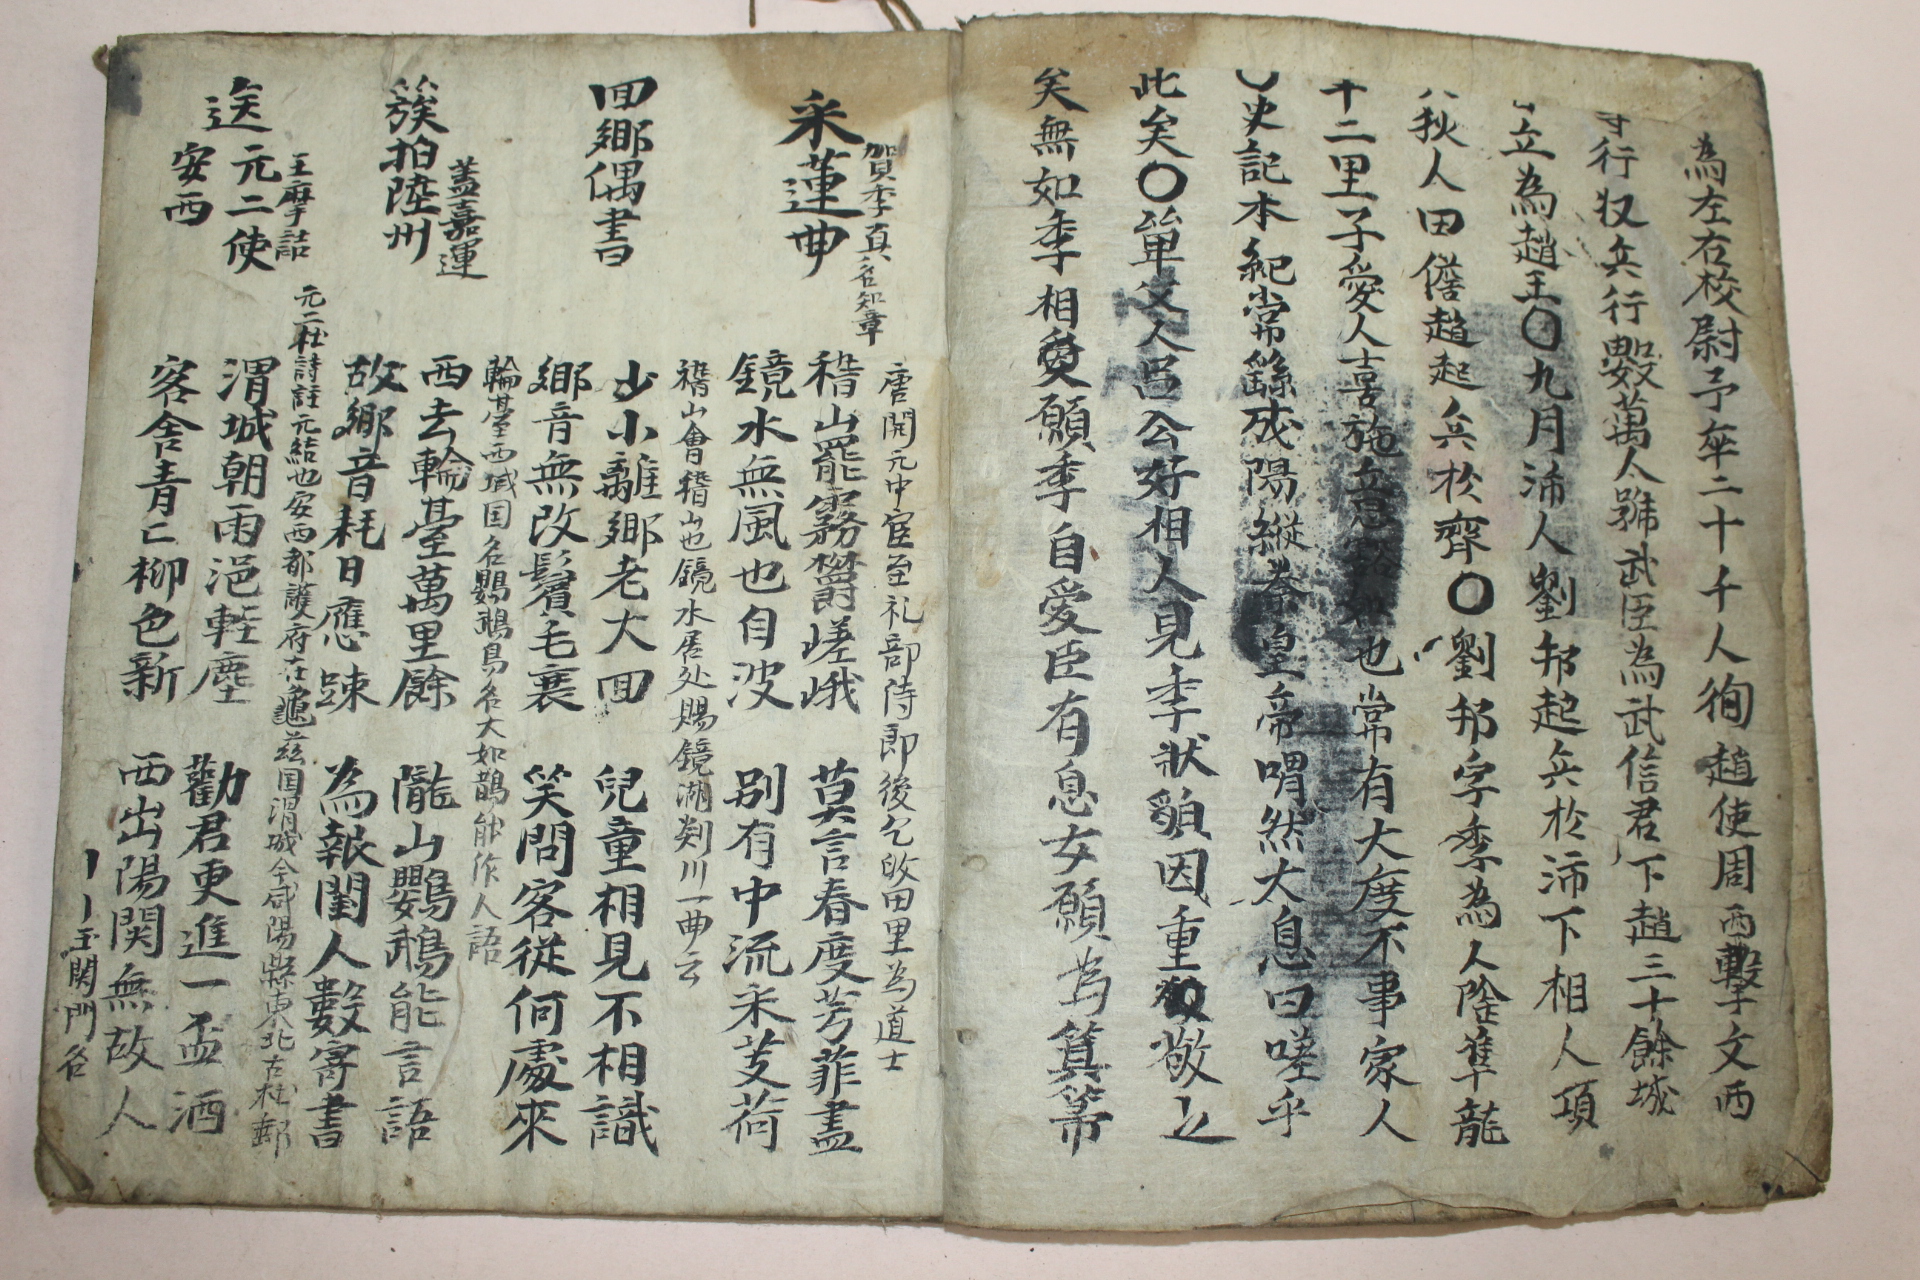 為左右校尉予卒二十千人徇趙使周西擊文西
行収兵行數萬人號武臣為武信君下趙三十餘城
立為趙王〇九月沛人劉邦起兵於沛下相人項
狄人田儋趙起兵於齊〇劉邦字季為人隆準龍
十二里子愛人喜施意豁如也常有大度不事家人
〇史記本紀常繇咸陽縱拳皇帝喟然太息曰嗟乎
此矣〇單父人呂公好相人見季狀貌因重敬之
矣無如季相愛願季自愛臣有息女願為箕箒
采蓮曲 賀季真名知章
唐開元中官至礼部侍郎後乞敀田里為道士
稽山罷霧鬱嵯峨 莫言春度芳菲盡
鏡水無風也自波 別有中流采芰荷
稽山會稽山也鏡水居处賜鏡湖剡川一曲云
回鄉偶書
少小離鄉老大回 兒童相見不相識
鄉音無改鬢毛衰 笑問客從何處來
簇拍陸州 蓋嘉運
輪臺西域国名鸚鵡鳥名大如鵲能作人語
西去輪臺萬里餘 隴山鸚鵡能言語
故鄉音耗日應踈 為報閨人數寄書
送元二使安西 王摩詰
元二杜詩註元結也安西都護府在龜茲国渭城今咸陽縣東北古杜郵
渭城朝雨浥輕塵 勸君更進一盃酒
客舍青亡柳色新 西出陽関無故人
玉関門名